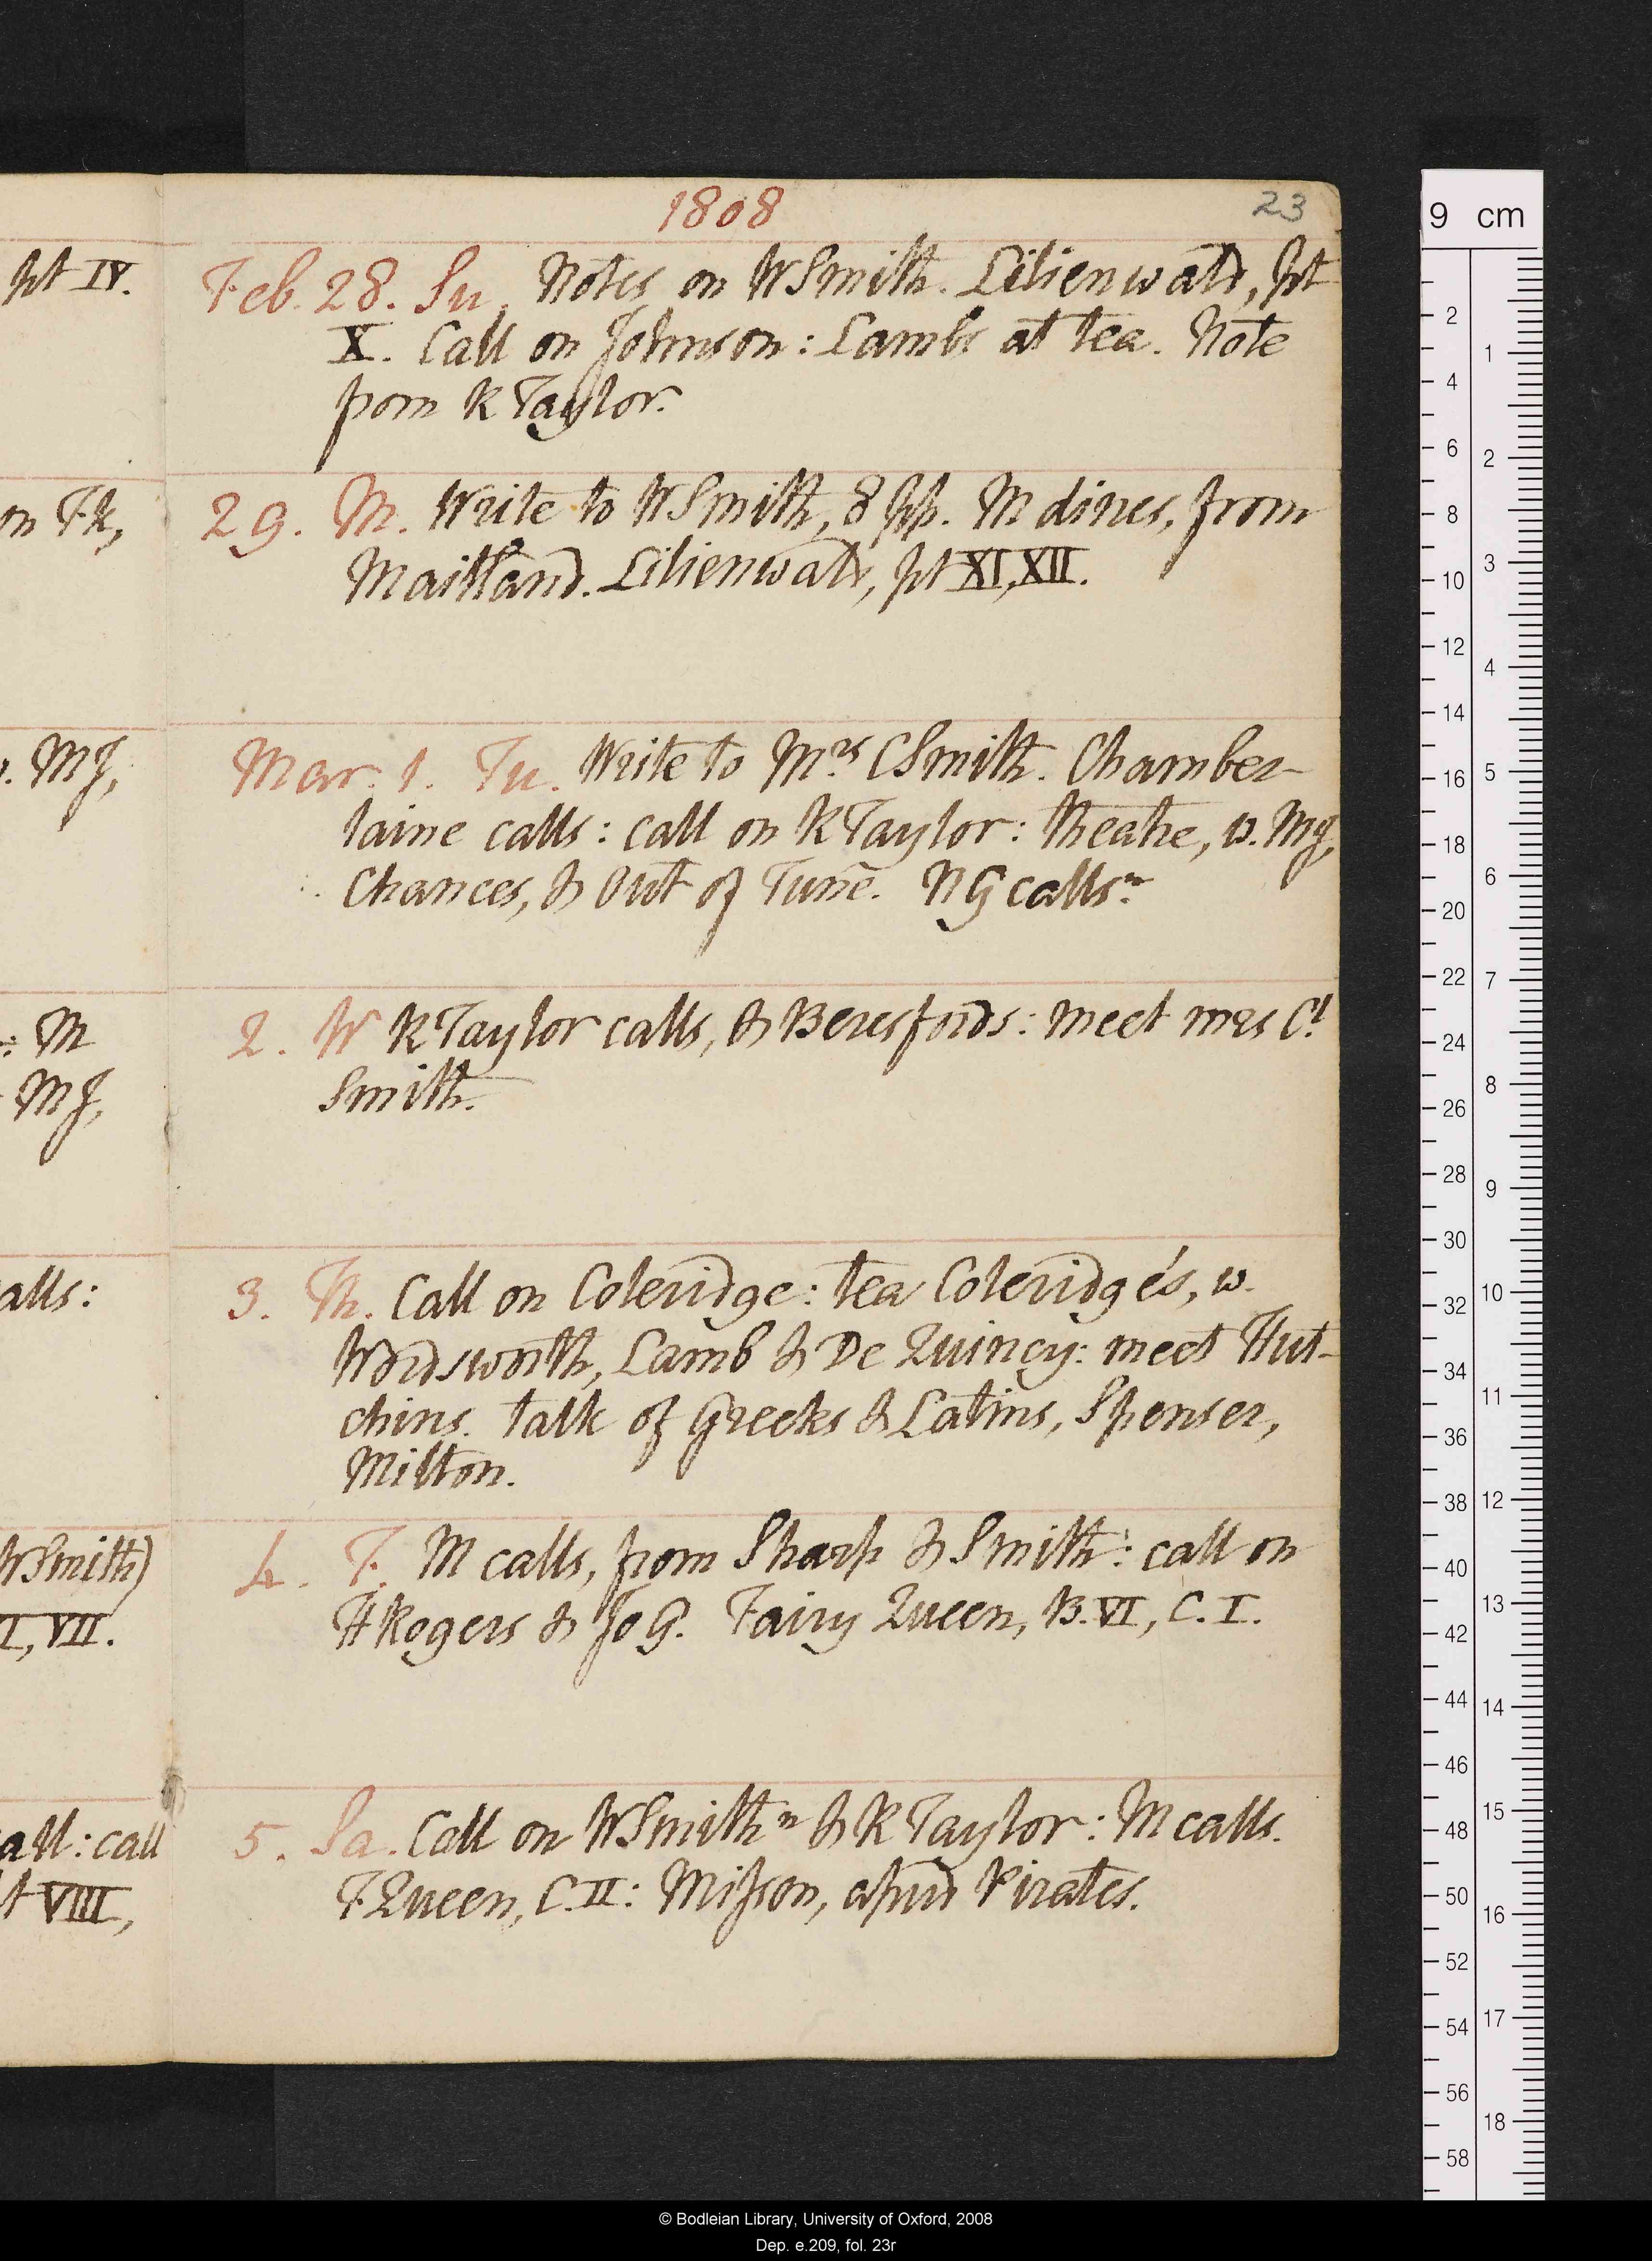 pt IV.
on Fk,
. MJ,
: M
MJ,
alls:
WSmith)
I, VII.
all: call
t VIII,
1808
23
Feb. 28. Su. Notes on WSmith. Lilienwald, pt
X. Call on Johnson: Lambs at tea. Note
from K Taylor.
29. M. Write to WSmith, 8 pp. M dines, from
Maitland. Lilienwald, pt XI, XII.
Mar. 1. Tu. Write to Mrs CSmith. Chamber-
laine calls: call on K Taylor: theatre, w. MJ,
Chances, & Out of Tune. NG calls n.
2. W K Taylor calls, & Beresfords: meet mrs Ct
Smith.
3. Th. Call on Coleridge: tea Coleridge's, w.
Wordsworth, Lamb & De Quincy: meet Hut-
chins. talk of Greeks & Latins, Spenser,
Milton.
4. F. M calls, from Sharp & Smith: call on
HRogers & Jo G. Fairy Queen, B. VI, C. I.
5. Sa. Call on WSmith n & K Taylor: M calls.
F. Queen, C. II: Misson, apud Pirates.
9 cm
2
4
6
8
10
12
14
16
18
20
22
24
26
28
30
32
34
36
38
40
42
44
46
48
50
52
54
56
58
1
2
3
4
5
6
7
8
9
10
11
12
13
14
15
16
17
18
© Bodleian Library, University of Oxford, 2008
Dep. e.209, fol. 23r